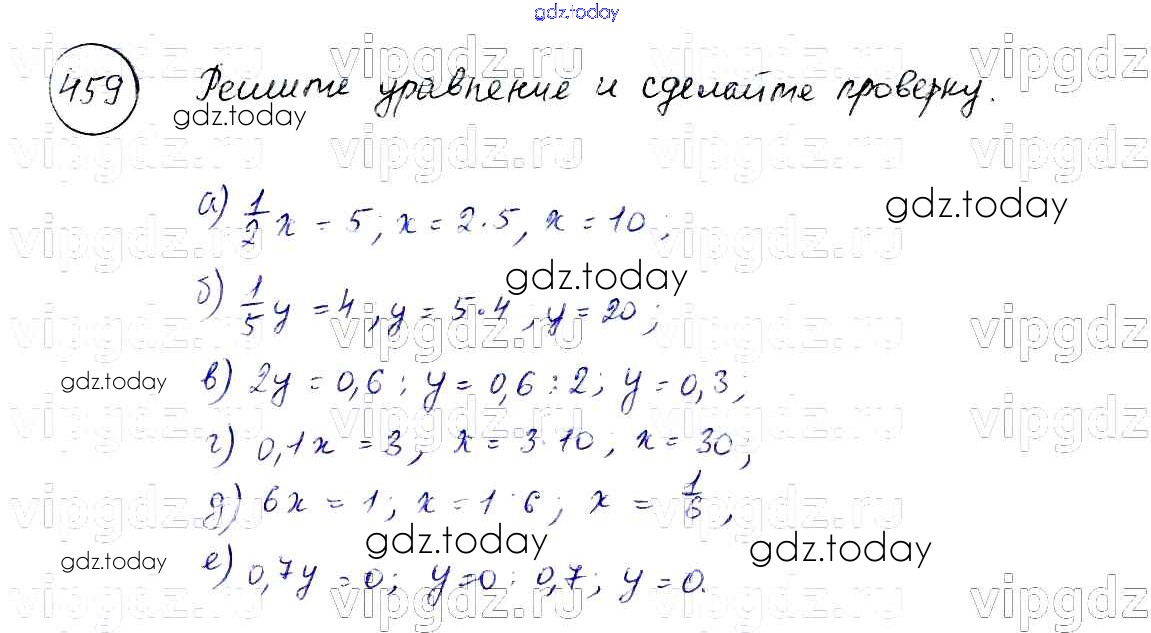 gdz.today
vipgdz.ru vipgdz.ru vipgdz.ru vipgdz
459 Решите уравнение и сделайте проверку.
gdz.today
vipgdz.ru vipgdz.ru vipgdz.ru vipgdz
а) 1/2 x = 5; x = 2·5, x = 10;
gdz.today
vipgdz.ru vipgdz.ru vipgdz.ru vipgdz
gdz.today
б) 1/5 y = 4, y = 5·4; y = 20;
vipgdz.ru vipgdz.ru vipgdz.ru vipgdz
gdz.today
в) 2y = 0,6; y = 0,6 : 2; y = 0,3;
vipgdz.ru vipgdz.ru vipgdz.ru vipgdz
г) 0,1x = 3, x = 3·10, x = 30;
vipgdz.ru vipgdz.ru vipgdz.ru vipgdz
д) 6x = 1; x = 1 : 6; x = 1/6,
gdz.today gdz.today gdz.today
е) 0,7y = 0; y = 0 : 0,7; y = 0.
vipgdz.ru vipgdz.ru vipgdz.ru vipgdz